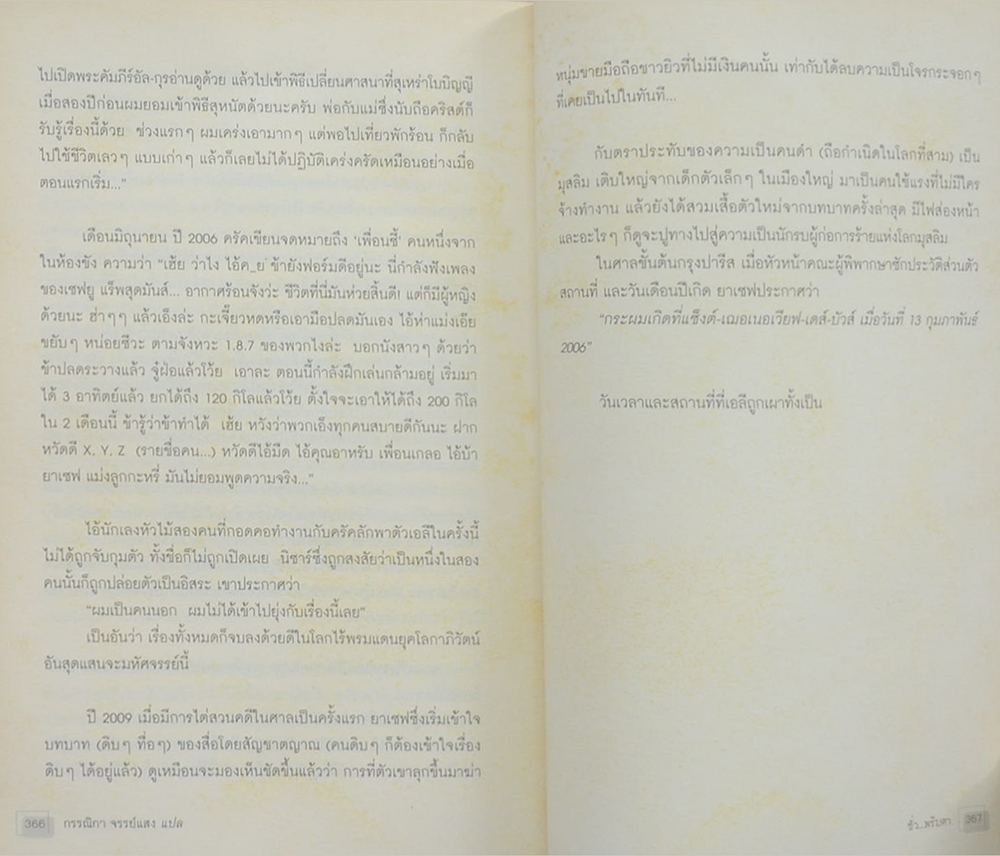 ไปเปิดพระคัมภีร์อัล-กุรอ่านดูด้วย แล้วไปเข้าพิธีเปลี่ยนศาสนาที่สุเหร่าโบบิญญี
เมื่อสองปีก่อนผมยอมเข้าพิธีสุหนัตด้วยนะครับ พ่อกับแม่ซึ่งนับถือคริสต์ก็
รับรู้เรื่องนี้ด้วย ช่วงแรกๆ ผมเคร่งเอามากๆ แต่พอไปเที่ยวพักร้อน ก็กลับ
ไปใช้ชีวิตเลวๆ แบบเก่าๆ แล้วก็เลยไม่ได้ปฏิบัติเคร่งครัดเหมือนอย่างเมื่อ
ตอนแรกเริ่ม..."
เดือนมิถุนายน ปี 2006 ครัคเขียนจดหมายถึง 'เพื่อนซี้' คนหนึ่งจาก
ในห้องขัง ความว่า "เฮ้ย ว่าไง ไอ้ค_ย ข้ายังฟอร์มดีอยู่นะ นี่กำลังฟังเพลง
ของเซฟยู แร็พสุดมันส์... อากาศร้อนจังว่ะ ชีวิตที่นี่มันห่วยสิ้นดี! แต่ก็มีผู้หญิง
ด้วยนะ ฮ่าๆๆ แล้วเอ็งล่ะ กะเจี๊ยวหดหรือเอามือปลดมันเอง ไอ้ห่าแม่งเอ๊ย
ขยับๆ หน่อยซีวะ ตามจังหวะ 1.8.7 ของพวกไงล่ะ บอกนังสาวๆ ด้วยว่า
ข้าปลดระวางแล้ว จู๋ฝ่อแล้วโว้ย เอาละ ตอนนี้กำลังฝึกเล่นกล้ามอยู่ เริ่มมา
ได้ 3 อาทิตย์แล้ว ยกได้ถึง 120 กิโลแล้วโว้ย ตั้งใจจะเอาให้ได้ถึง 200 กิโล
ใน 2 เดือนนี้ ข้ารู้ว่าข้าทำได้ เฮ้ย หวังว่าพวกเอ็งทุกคนสบายดีกันนะ ฝาก
หวัดดี X, Y, Z (รายชื่อคน...) หวัดดีไอ้มืด ไอ้คุณอาหรับ เพื่อนเกลอ ไอ้บ้า
ยาเซฟ แม่งลูกกะหรี่ มันไม่ยอมพูดความจริง..."
ไอ้นักเลงหัวไม้สองคนที่กอดคอทำงานกับครัคลักพาตัวเอลีในครั้งนี้
ไม่ได้ถูกจับกุมตัว ทั้งชื่อก็ไม่ถูกเปิดเผย นิซาร์ซึ่งถูกสงสัยว่าเป็นหนึ่งในสอง
คนนั้นก็ถูกปล่อยตัวเป็นอิสระ เขาประกาศว่า
"ผมเป็นคนนอก ผมไม่ได้เข้าไปยุ่งกับเรื่องนี้เลย"
เป็นอันว่า เรื่องทั้งหมดก็จบลงด้วยดีในโลกไร้พรมแดนยุคโลกาภิวัตน์
อันสุดแสนจะมหัศจรรย์นี้
ปี 2009 เมื่อมีการไต่สวนคดีในศาลเป็นครั้งแรก ยาเซฟซึ่งเริ่มเข้าใจ
บทบาท (ดิบๆ ทื่อๆ) ของสื่อโดยสัญชาตญาณ (คนดิบๆ ก็ต้องเข้าใจเรื่อง
ดิบๆ ได้อยู่แล้ว) ดูเหมือนจะมองเห็นชัดขึ้นแล้วว่า การที่ตัวเขาลุกขึ้นมาฆ่า
366 กรรณิกา จรรย์แสง แปล
หนุ่มขายมือถือชาวยิวที่ไม่มีเงินคนนั้น เท่ากับได้ลบความเป็นโจรกระจอกๆ
ที่เคยเป็นไปในทันที...
กับตราประทับของความเป็นคนดำ (ถือกำเนิดในโลกที่สาม) เป็น
มุสลิม เติบใหญ่จากเด็กตัวเล็กๆ ในเมืองใหญ่ มาเป็นคนใช้แรงที่ไม่มีใคร
จ้างทำงาน แล้วยังได้สวมเสื้อตัวใหม่จากบทบาทครั้งล่าสุด มีไฟส่องหน้า
และอะไรๆ ก็ดูจะปูทางไปสู่ความเป็นนักรบผู้ก่อการร้ายแห่งโลกมุสลิม
ในศาลชั้นต้นกรุงปารีส เมื่อหัวหน้าคณะผู้พิพากษาซักประวัติส่วนตัว
สถานที่ และวันเดือนปีเกิด ยาเซฟประกาศว่า
"กระผมเกิดที่แซ็งต์-เฌอเนอเวียฟ-เดส์-บัวส์ เมื่อวันที่ 13 กุมภาพันธ์
2006"
วันเวลาและสถานที่ที่เอลีถูกเผาทั้งเป็น
ชั่ว...พริบตา 367